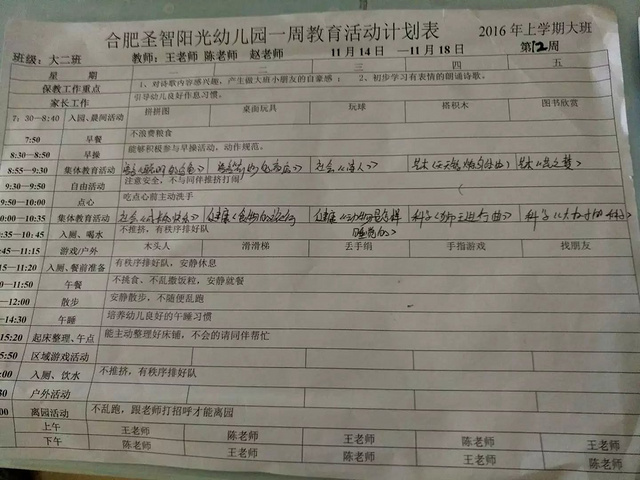 合肥圣智阳光幼儿园一周教育活动计划表 2016年上学期大班
班级：大二班 教师：王老师 陈老师 赵老师 11月14日 —11月18日 第12周
星 期 一 二 三 四 五
保教工作重点 1、对诗歌内容感兴趣，产生做大班小朋友的自豪感； 2、初步学习有表情的朗诵诗歌。
家长工作 引导幼儿良好作息习惯。
7：30—8:40 入园、晨间活动 拼拼图 桌面玩具 玩球 搭积木 图书欣赏
7:50 早餐 不浪费粮食
8:30—8:50 早操 能够积极参与早操活动，动作规范、
8:55—9:30 集体教育活动
9:30—9:50 自由活动 注意安全，不与同伴推挤打闹
9:50—10:00 点心 吃点心前主动洗手
00—10:35 集体教育活动 科学《狮王进行曲》
0:35—10:45 入厕、喝水 不推挤，有秩序排好队
:45—11:15 游戏/户外 木头人 滑滑梯 丢手绢 手指游戏 找朋友
15—11:20 入厕、餐前准备 有秩序排好队，安静休息
—11:50 午餐 不挑食、不乱撒饭粒，安静就餐
—12:00 散步 安静散步，不随便乱跑
—14:30 午睡 培养幼儿良好的午睡习惯
15:20 起床整理、午点 能主动整理好床铺，不会的请同伴帮忙
5:50 区域游戏活动
:00 入厕、饮水 不推挤，有秩序排好队
30 户外活动
00 离园活动 不乱跑，跟老师打招呼才能离园
上午 王老师 陈老师 王老师 陈老师 王老师
下午 陈老师 王老师 陈老师 王老师 陈老师